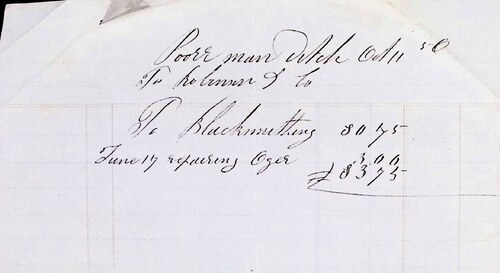 Poore man ditch Oct 11 50
To Robinson & Co
To Blacksmithing 80 75
June 17 repairing Oger 3.00
$83 75